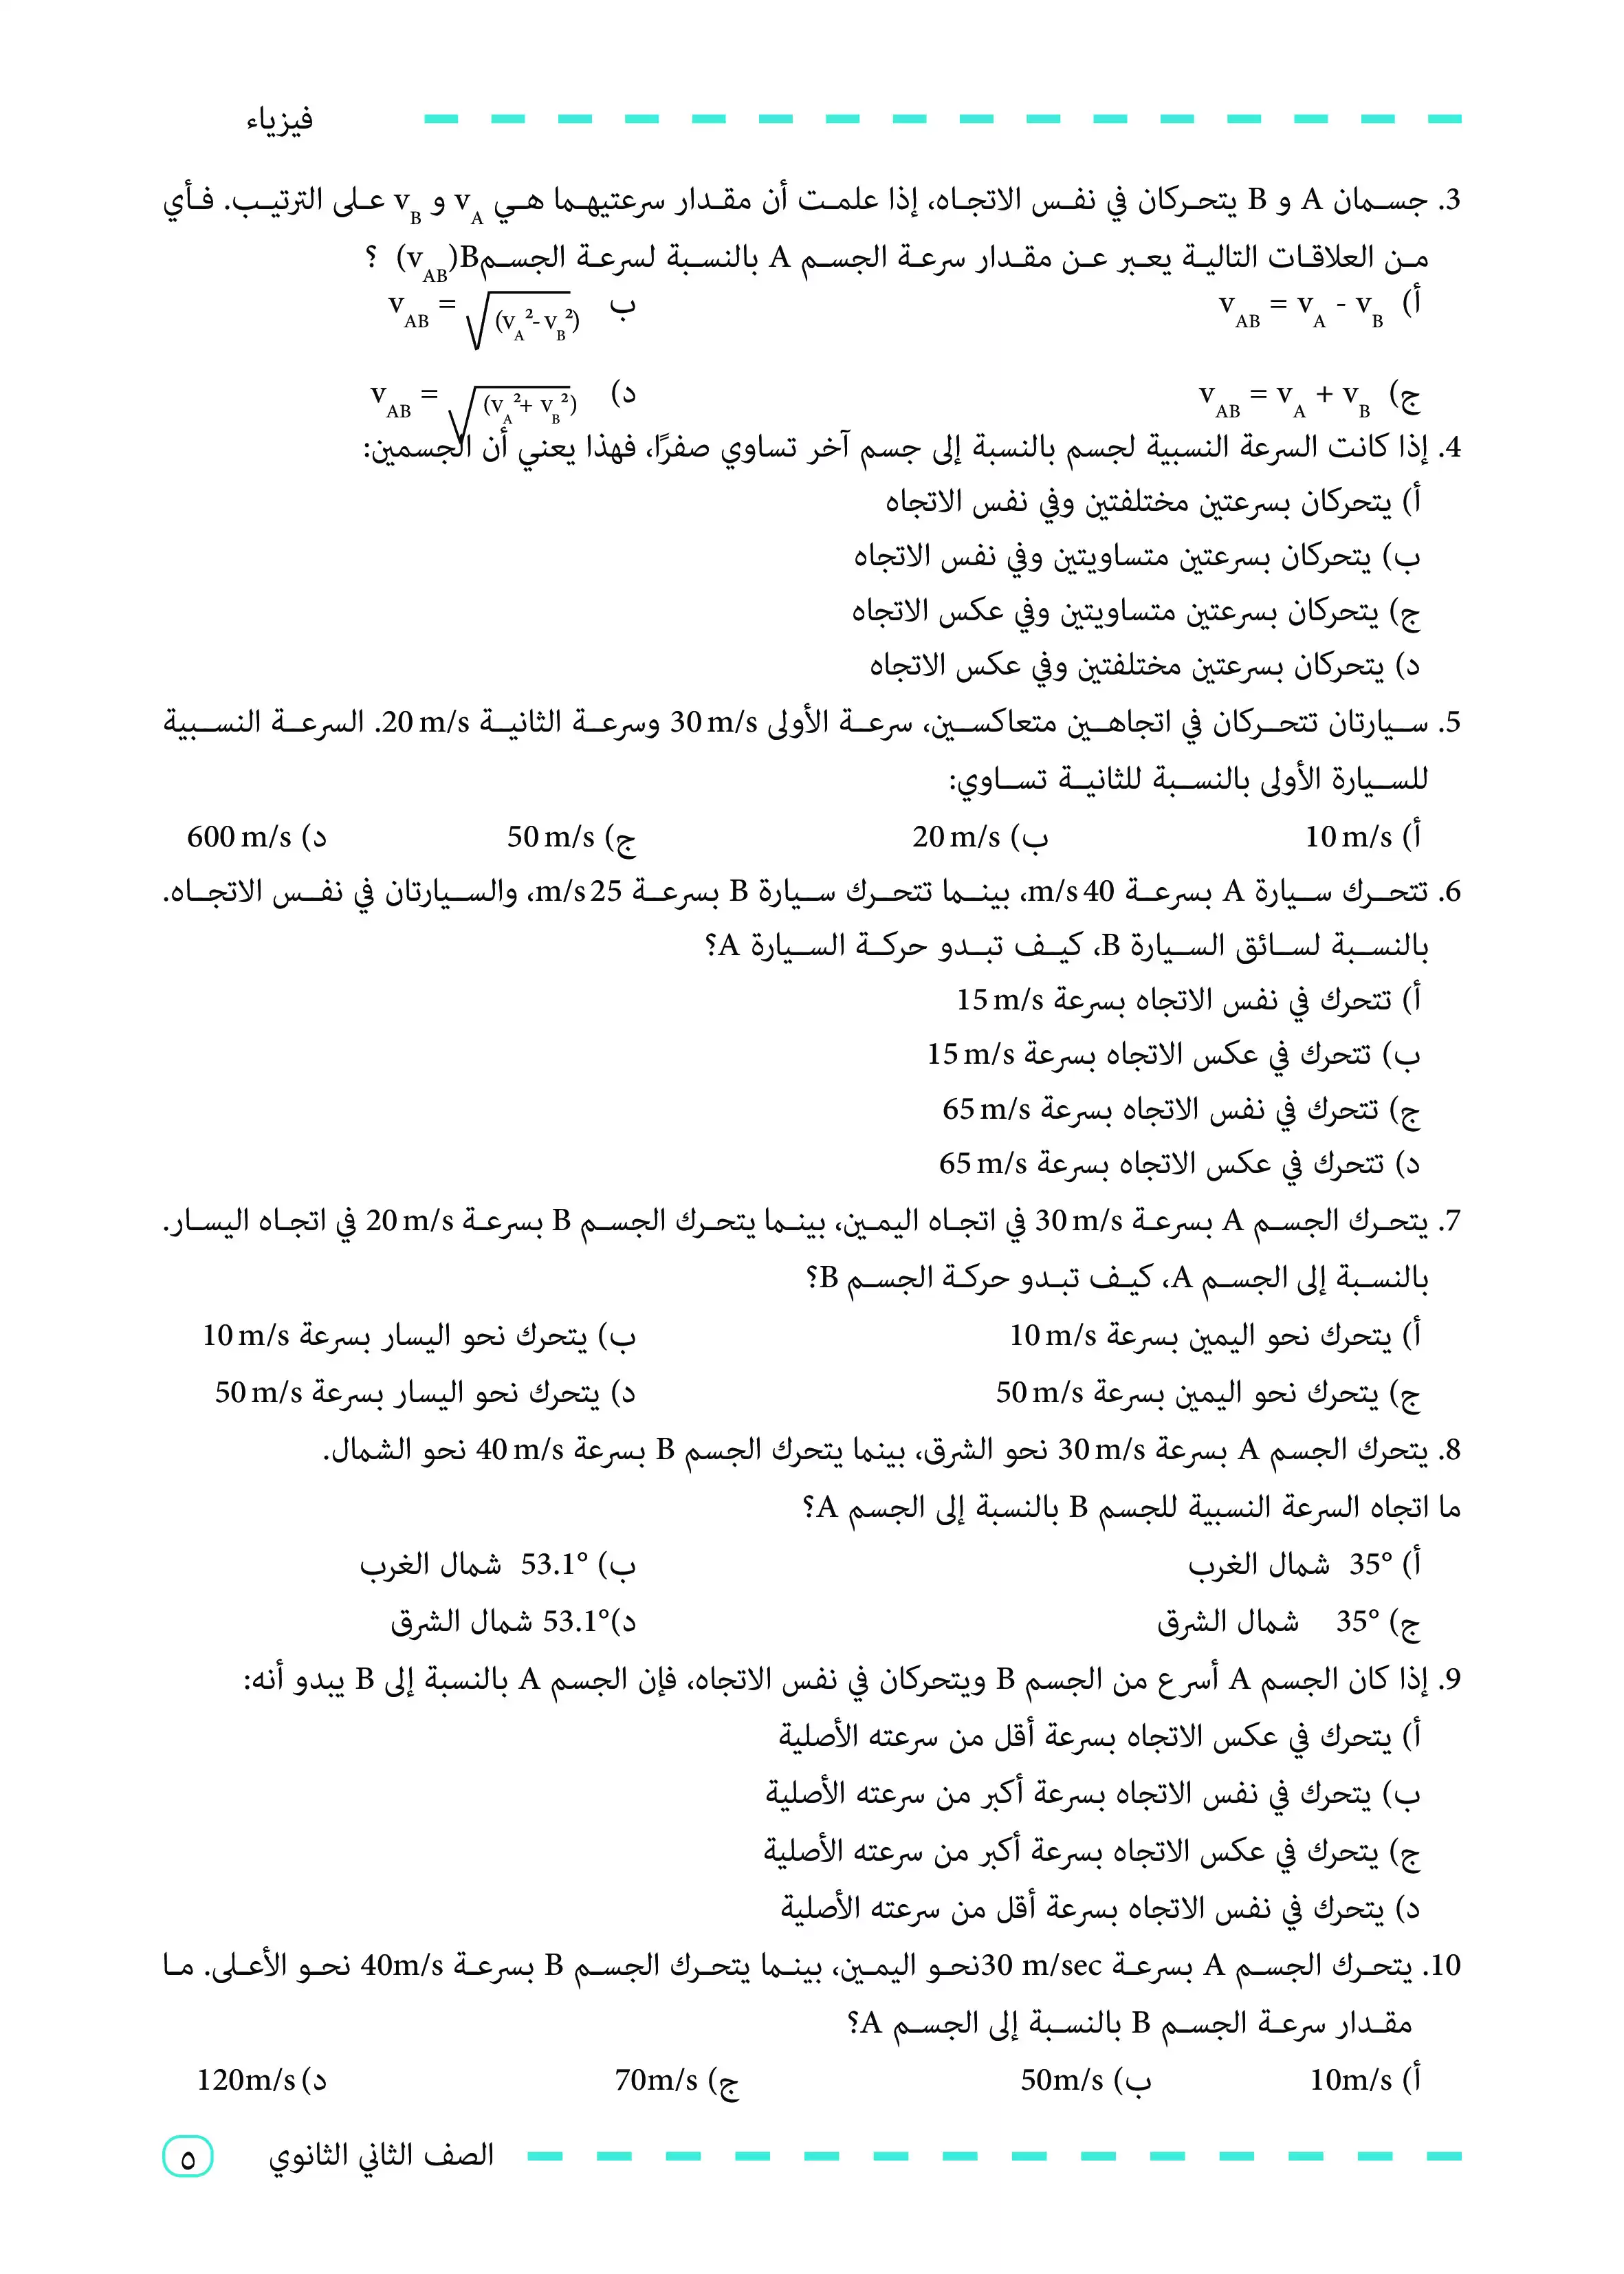 فيزياء
3. جسمان A و B يتحركان في نفس الاتجاه، إذا علمت أن مقدار سرعتيهما هي vA و vB على الترتيب. فأي
من العلاقات التالية يعبر عن مقدار سرعة الجسم A بالنسبة لسرعة الجسمB (vAB) ؟
أ) vAB = vA - vB ب vAB = √(vA²- vB²)
ج) vAB = vA + vB د) vAB = √(vA²+ vB²)
4. إذا كانت السرعة النسبية لجسم بالنسبة إلى جسم آخر تساوي صفرًا، فهذا يعني أن الجسمين:
أ) يتحركان بسرعتين مختلفتين وفي نفس الاتجاه
ب) يتحركان بسرعتين متساويتين وفي نفس الاتجاه
ج) يتحركان بسرعتين متساويتين وفي عكس الاتجاه
د) يتحركان بسرعتين مختلفتين وفي عكس الاتجاه
5. سيارتان تتحركان في اتجاهين متعاكسين، سرعة الأولى 30 m/s وسرعة الثانية 20 m/s. السرعة النسبية
للسيارة الأولى بالنسبة للثانية تساوي:
أ) 10 m/s ب) 20 m/s ج) 50 m/s د) 600 m/s
6. تتحرك سيارة A بسرعة m/s 40، بينما تتحرك سيارة B بسرعة m/s 25، والسيارتان في نفس الاتجاه.
بالنسبة لسائق السيارة B، كيف تبدو حركة السيارة A؟
أ) تتحرك في نفس الاتجاه بسرعة 15 m/s
ب) تتحرك في عكس الاتجاه بسرعة 15 m/s
ج) تتحرك في نفس الاتجاه بسرعة 65 m/s
د) تتحرك في عكس الاتجاه بسرعة 65 m/s
7. يتحرك الجسم A بسرعة 30 m/s في اتجاه اليمين، بينما يتحرك الجسم B بسرعة 20 m/s في اتجاه اليسار.
بالنسبة إلى الجسم A، كيف تبدو حركة الجسم B؟
أ) يتحرك نحو اليمين بسرعة 10 m/s ب) يتحرك نحو اليسار بسرعة 10 m/s
ج) يتحرك نحو اليمين بسرعة 50 m/s د) يتحرك نحو اليسار بسرعة 50 m/s
8. يتحرك الجسم A بسرعة 30 m/s نحو الشرق، بينما يتحرك الجسم B بسرعة 40 m/s نحو الشمال.
ما اتجاه السرعة النسبية للجسم B بالنسبة إلى الجسم A؟
أ) 35° شمال الغرب ب) 53.1° شمال الغرب
ج) 35° شمال الشرق د)53.1° شمال الشرق
9. إذا كان الجسم A أسرع من الجسم B ويتحركان في نفس الاتجاه، فإن الجسم A بالنسبة إلى B يبدو أنه:
أ) يتحرك في عكس الاتجاه بسرعة أقل من سرعته الأصلية
ب) يتحرك في نفس الاتجاه بسرعة أكبر من سرعته الأصلية
ج) يتحرك في عكس الاتجاه بسرعة أكبر من سرعته الأصلية
د) يتحرك في نفس الاتجاه بسرعة أقل من سرعته الأصلية
10. يتحرك الجسم A بسرعة 30 m/secنحو اليمين، بينما يتحرك الجسم B بسرعة 40m/s نحو الأعلى. ما
مقدار سرعة الجسم B بالنسبة إلى الجسم A؟
أ) 10m/s ب) 50m/s ج) 70m/s د) 120m/s
الصف الثاني الثانوي ٥